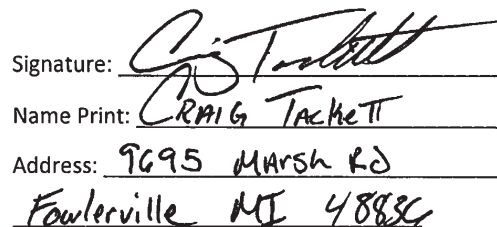 Signature: Craig Tackett
Name Print: CRAIG TACKETT
Address: 9695 MARSH RD
Fowlerville MI 48836